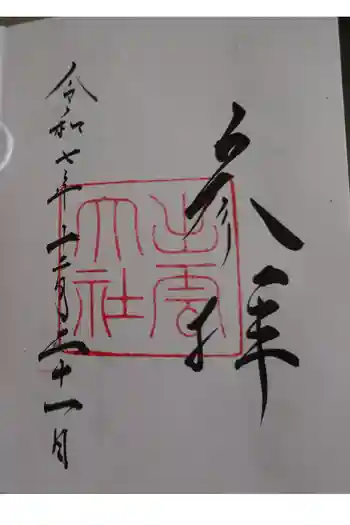 参拝
出雲
大社
令和七年十二月三十一日